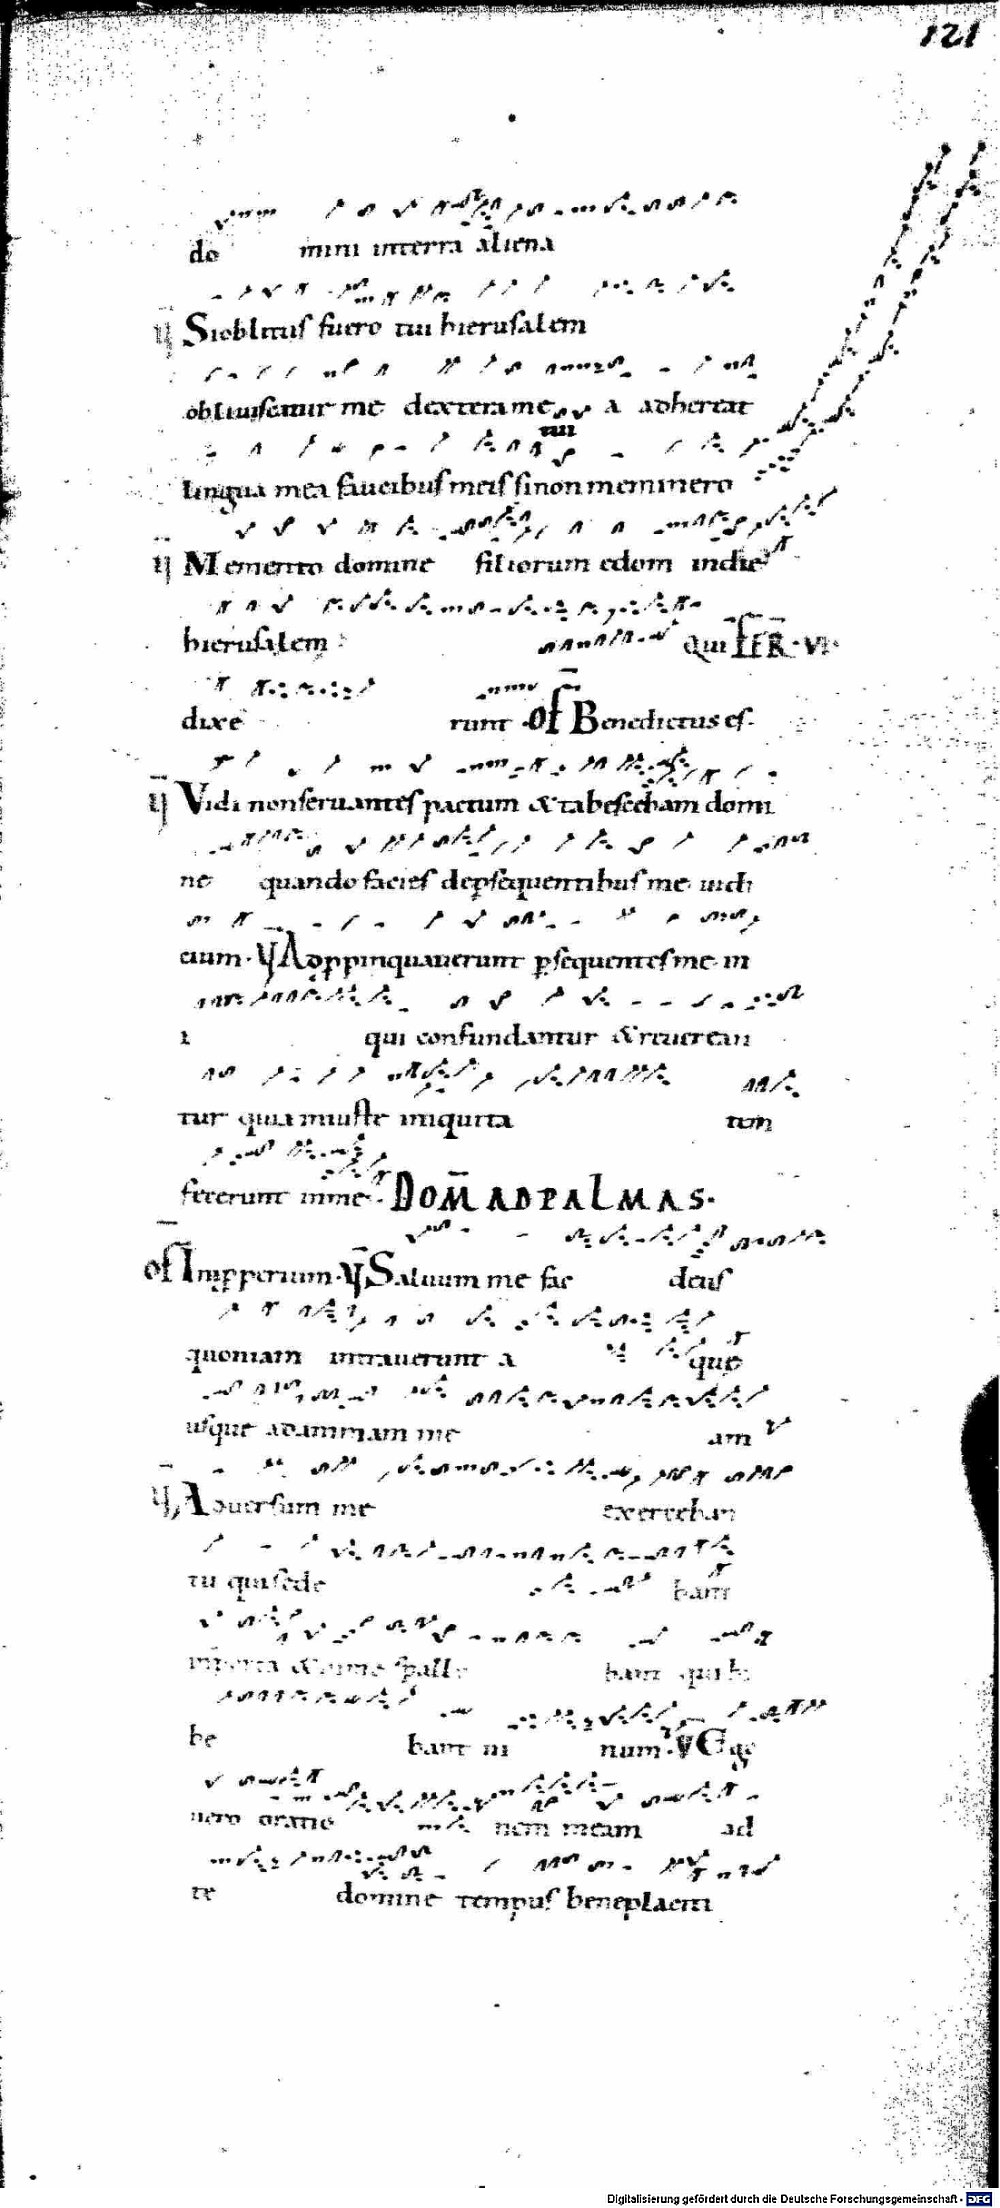 121
do mini interra aliena
Sioblitus fuero tui hierusalem
obliuiscatur me dextera me a adhereat
lingua mea faucibus meis sinon meminero
Memento domine filiorum edom indie
hierusalem qui FER · VI ·
dixe runt · OF Benedictus es ·
Vidi nonseruantes pactum & tabescebam domi
ne quando facies depsequentibus me iudi
cium · Adppinquauerunt psequentes me in
i qui confundantur & reuerean
tur quia iniuste iniquita tem
fecerunt inme · DOM AD PALMAS ·
OF Impperium · Saluum me fac deus
quoniam intrauerunt a que
usque adanimam me am
Aduersum me exerceban
tur quisede bant
inporta & inme psalle bant quibi
be bant ui num · Ego
uero oratio nem meam ad
te domine tempus beneplaciti
Digitalisierung gefördert durch die Deutsche Forschungsgemeinschaft - DFG